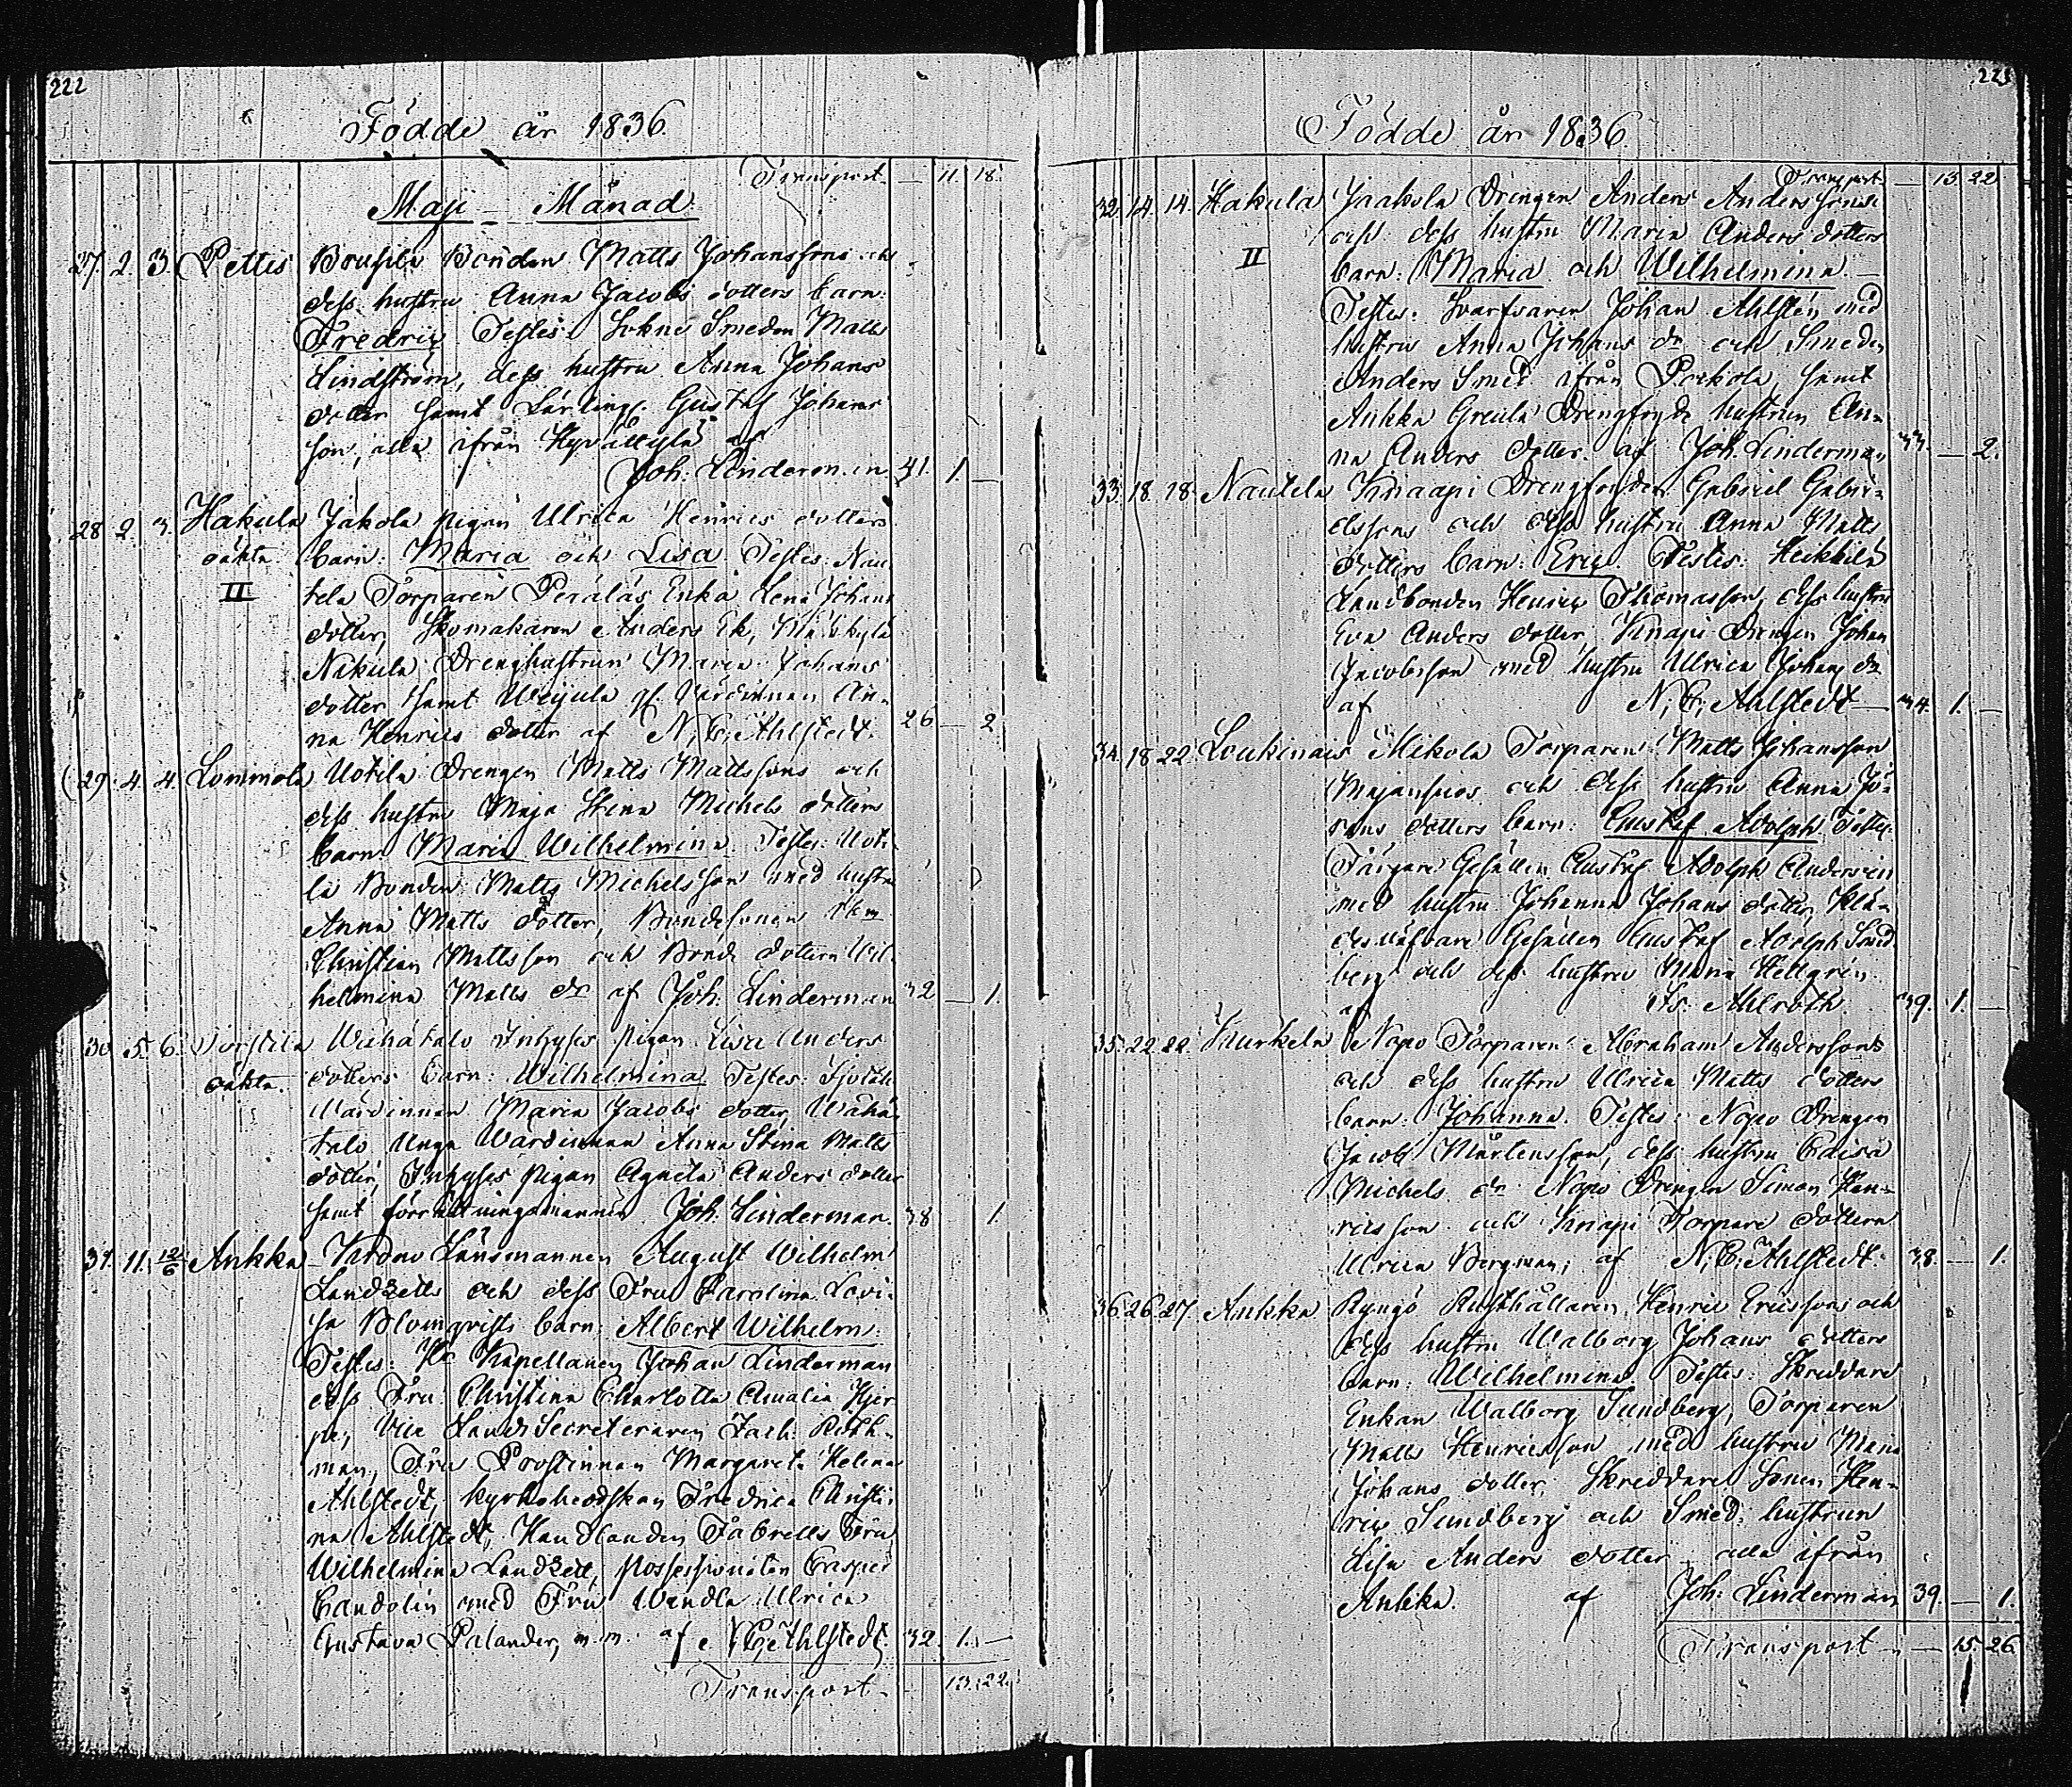 222
Födde år 1836.
Transport — 11. 18.
Maji Månad.
27. 2. 3. Pettis Bonden Matts Johanssons och
dess hustru Anna Jacobs dotters barn:
Fredric Testes: Sokne Smeden Matts
Lindström, dess hustru Anna Johans
dotter samt Lärling. Gustaf Johans
son, alla ifrån af
Joh: Linderman 41. 1. —
28. 2. 3. Hakula Jakola pigan Ulrica Henrics dotters
oäkta. barn: Maria och Lisa Testes: Nau
II tela Torparen Peräläs Enka Lena Johans
dotter, Skomakaren Anders Ek,
Nakula Drenghustrun Maria Johans
dotter samt gl. Värdinnan An-
na Henrics dotter af N. C. Ahlstedt. 26 — 2.
29. 4. 4. Lommola Uotila Drengen Matts Mattssons och
dess hustru Maja Stina Michels dotters
barn: Maria Wilhelmina. Testes: Uoti
la Bonden Matts Michelsson med hustru
Anna Matts dotter, Bondesonen
Christian Mattsson och Bonde dottern Wil
helmina Matts dr af Joh: Linderman 32 — 1.
30. 5. 6. Wähätalo Inhyses pigan Lisa Anders
oäkta. dotters barn: Wilhelmina Testes:
Värdinnan Maria Jacobs dotter, Wähä-
talo unga Värdinnan Anna Stina Matts
dotter, Inhyses pigan Agneta Anders dotter
samt förrättningsmannen Joh: Linderman. 38 1.
31. 11. 12/6 Ankka Krono Länsmannen August Wilhelm
Landzetts och dess Fru Carolina Lovi-
sa Blomqvists barn: Albert Wilhelm.
Testes: Kapellanen Johan Linderman
dess Fru Christina Charlotta Amalia Hjer
pe, Vice Lands Secreteraren Zach: Roth-
man, Fru Prostinnan Margareta Helena
Ahlstedt, kyrkoherdskan Fredrica Christi-
na Ahlstedt, Handlanden Fabrells Fru
Wilhelmina Landzett, possessionaten Casper
Candolin med Fru Wendla Ulrica
Gustava Palander, m.m. af N. C. Ahlstedt. 32. 1. —
Transport — 13. 22.
Födde år 1836.
Transport — 13. 22
32. 14. 14. Hakula Jaakola Drengen Anders Anderssons
och dess hustru Maria Anders dotters
II barn: Maria och Wilhelmina. —
Testes: Svarfvaren Johan Ahlstén med
hustru Anna Johans dr och Smeden
Anders Smed ifrån Porkola, samt
Ankka Greula Drengfogde hustrun An-
na Anders dotter. af Joh. Linderman 33. — 2.
33. 18. 18. Nautela Knaapi Drengfogden Gabriel Gabri-
elssons och dess hustru Anna Matts
dotters barn: Eric. Testes: Heikkilä
Landbonden Henric Thomasson, dess hustru
Eva Anders dotter, Knapi Drengen Johan
Jacobsson med hustru Ulrica Johans dr
af N. C. Ahlstedt — 34. 1. —
34. 18. 22. Loukinais Mikola Torparen Matts Johansson
och dess hustru Anna Jö-
rans dotters barn: Gustaf Adolph Testes:
Färgare Gesällen Gustaf Adolph Andersin
med hustru Johanna Johans dotter, Klä-
desväfvare Gesällen Gustaf Adolph Sund
berg och dess hustru Maria Hellgrén
af Fr. Ahlroth. 39. 1. —
35. 22. 22. Kurkela Nopo Torparen Abraham Anderssons
och dess hustru Ulrica Matts dotters
barn: Johanna. Testes: Nopo Drengen
Jacob Mårtensson, dess hustru Caisa
Michels dr Nopo Drengen Simon Hen-
ricsson och Knapi Torpare dottern
Ulrica Bergman, af N. C. Ahlstedt. 38. — 1.
36. 26. 27. Ankka Ryngö Rusthållaren Henric Ericssons och
dess hustru Walborg Johans dotters
barn: Wilhelmina. Testes: Skreddare
Enkan Walborg Sundberg, Torparen
Matts Henricsson med hustru Maria
Johans dotter, Skreddare Sonen Hen-
ric Sundberg och Smed hustrun
Lisa Anders dotter alla ifrån
Ankka. af Joh: Linderman 39. — 1.
Transport — 15. 26